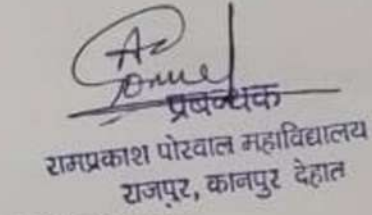 प्रबन्धक
रामप्रकाश पोरवाल महाविद्यालय
राजपुर, कानपुर देहात